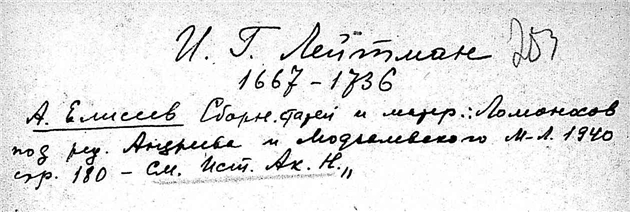 И. Г. Лейтман 253
1667 – 1736
А. Елисеев Сборн. статей и матер.: Ломоносов
под ред. Андреева и Модзалевского М-Л. 1940
стр. 180 – См. Ист. Ак. Н. „